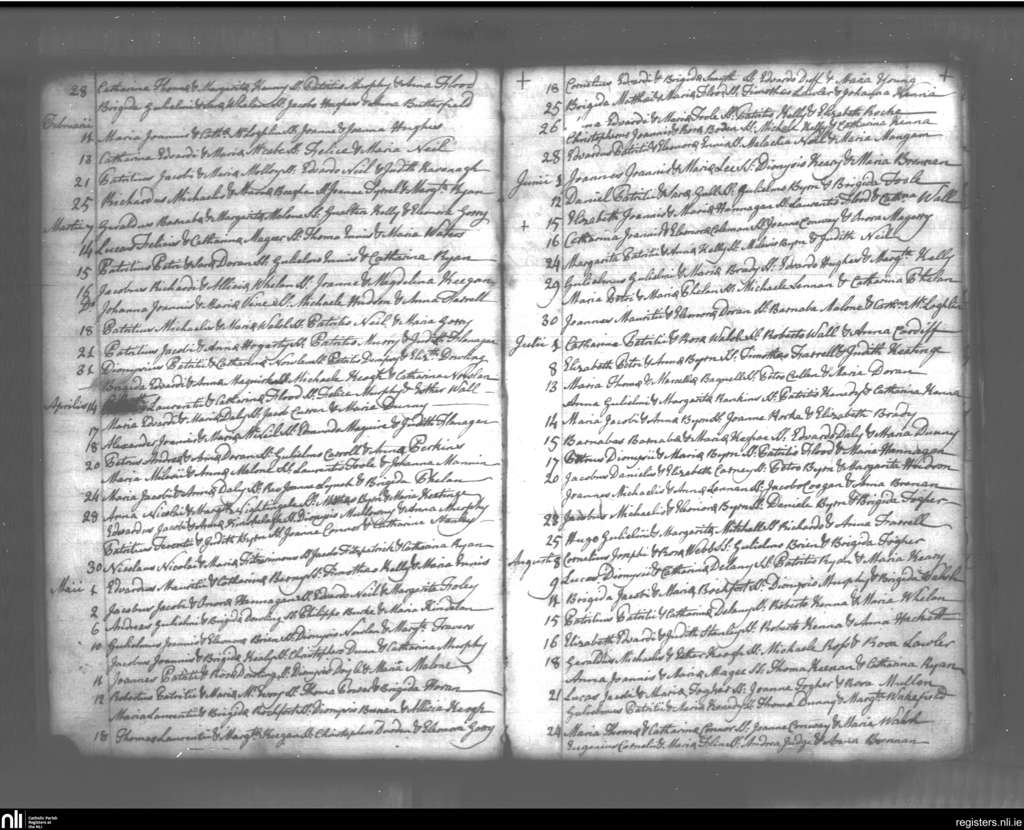 28 Catharina Thomæ & Margarita Kenny Sp. Patritius Murphy & Anna Flood
Brigida Gulielmi & Anna Whelan Sp. Jacobo Hughes & Anna Butterfield
Februarii
11 Maria Joannis & Cath: McLoghlin Sp. Joanne & Joanna Hughes
13 Catharina Edvardi & Maria Sp. Felice & Maria Neil
21 Patritius Jacobi & Maria Molloy Sp. Edvardo Neil & Judith Kavanagh
25 Richardus Michaelis & Maria Sp. Joanne & Margta Ryan
Martii 7 Geraldus Barnabæ & Margarita Malone Sp. Gualtero Kelly & Elenora Gorry
14 Lucas Felicis & Catharina Magee Sp. Thoma Ennis & Maria Waters
15 Patritius Petri & Sara Doran Sp. Gulielmo Ennis & Catharina Ryan
16 Jacobus Richardi & Allicia Whelan Sp. Joanne & Magdelina Keegan
Do Johanna Joannis & Maria Sp. Michaele Hudson & Anna Farrell
18 Patritius Michaelis & Maria Walsh Sp. Patritio Neil & Maria Gorry
21 Patritius Jacobi & Anna Hogarty Sp. Patritio & Judith Flanagan
31 Dionysius Patritii & Catharina Nowlan Sp. Patritio Dempsy & Elizth Dowling
Brigida Edvardi & Anna Sp. Michaele & Catharina Nowlan
Aprilis 14 Laurentii & Catharina Flood Sp. Felice Murphy & Esther Wall
17 Maria Edvardi & Maria Daly Sp. Jacobo & Maria Dunny
18 Alexander Joannis & Maria McNeil Sp. Edvardo Maguire & Judith Flanagan
20 Petrus Andreæ & Anna Doran Sp. Gulielmo Carroll & Anna Perkins
Maria & Anna Malone Sp. Laurentio Toole & Johanna Mannin
24 Maria Jacobi & Anna Daly Sp. Joanne Lynch & Brigida Phelan
28 Anna Nicolai & Margta Nightingale Sp. Byrn & Maria Heatinge
Edvardus Jacobi & Anna Sp. Dionysio & Anna Murphy
Patritius Terentii & Judith Byrn Sp. Joanne Connor & Catharina
30 Nicolaus Nicolai & Maria Fitzsimons Sp. Jacobo Fitzpatrick & Catharina Ryan
Maii 1 Edvardus Mauritii & Catharina Sp. Timotheo Kelly & Maria Ennis
2 Jacobus Jacobi & Honora Hannagan Sp. Edvardo Neil & Margarita Froley
6 Andreas Gulielmi & Brigida Dowling Sp. Philippo Burke & Maria
10 Gulielmus Joannis & Elenora Brien Sp. Dionysio Nowlan & Margta Travers
Jacobus Joannis & Brigida Healy Sp. Christophero Dunn & Catharina Murphy
11 Joannes Patritii & Rosa Dowling Sp. Dionysio Doyle & Maria Malone
12 Robertus Patritii & Maria McEvoy Sp. Thoma & Brigida Horan
Maria Laurentii & Brigida Sp. Dionysio & Allicia Keogh
18 Thomas Laurentii & Margta Keegan Sp. Christophero & Elenora Gorry
+ +
18 Cornelius Edvardi & Brigida Smyth Sp. Edvardo Duff & Maria Young
25 Brigida Matthæi & Maria Flood Sp. Timotheo Lawler & Johanna Kenna
26 Edvardi & Maria Toole Sp. Patritio Kelly & Elizabeth Roche
Christopherus Joannis & Rosa Sp. Michaele Kelly & Catharina Kenna
28 Edvardus Patritii & Elenora Sp. Malachia Neil & Maria Mangan
Junii 1 Joannes Joannis & Maria Lee Sp. Dionysio Keary & Maria Brennan
12 Daniel Patritii & Sara Sp. Gulielmo Byrn & Brigida Toole
15 Elizabeth Joannis & Maria Hannagan Sp. Laurentio Flood & Cathna Wall
+ 16 Catharina Joannis & Elenora Coleman Sp. Joanne Conway & Honora Magarry
24 Margarita Patritii & Anna Kelly Sp. Byrn & Judith Neil
29 Gulielmus Gulielmi & Maria Brady Sp. Edvardo Hughes & Margta Kelly
Maria Petri & Maria Phelan Sp. Michaele Lennan & Catharina Phelan
30 Joannes Mauritii & Elenora Doran Sp. Barnaba Malone & Cathna McLoghlin
Julii 1 Catharina Patritii & Rosa Walsh Sp. Roberto Wall & Anna Cardiff
8 Elizabeth Petri & Anna Byrn Sp. Timotheo Farrell & Judith Heatinge
13 Maria Thomæ & Marcella Bagnell Sp. Petro Cullen & Maria Doran
Anna Gulielmi & Margarita Sp. Patritio & Catharina Kenna
14 Maria Jacobi & Anna Byrn Sp. Joanne & Elizabeth Brady
15 Barnabas Barnabæ & Maria Sp. Edvardo Daly & Maria Dunny
17 Dionysii & Maria Byrn Sp. Patritio Flood & Maria Hannagan
20 Jacobus Danielis & Elizabeth Carney Sp. Petro Byrn & Margarita Hudson
Joannes Michaelis & Anna Lennan Sp. Jacobo Coogan & Anna Brenan
23 Jacobus Michaelis & Honora Byrn Sp. Daniele Byrn & Brigida Fogher
25 Hugo Gulielmi & Margarita Mitchell Sp. Richardo & Anna Farrell
Augusti 8 Cornelius Josephi & Rosa Webb Sp. Gulielmo Brien & Brigida Fogher
9 Lucas Dionysii & Catharina Delany Sp. Patritio Ryan & Maria Keary
11 Brigida Jacobi & Maria Rochfort Sp. Dionysio Murphy & Brigida Walsh
15 Patritius Patritii & Catharina Delany Sp. Roberto Kenna & Maria Whelan
16 Elizabeth Edvardi & Judith Sp. Roberto Kenna & Anna
18 Geraldus Michaelis & Esther Keogh Sp. Michaele & Rosa Lawler
Anna Joannis & Maria Magee Sp. Thoma Keenan & Catharina Ryan
21 Lucas Jacobi & Maria Fogher Sp. Joanne Fogher & Rosa Mullon
Gulielmus Patritii & Maria Sp. Thoma Dunny & Margta Wakefield
24 Maria Thomæ & Catharina Connor Sp. Joanne Conway & Maria Walsh
Eugenius Cornelii & Maria Sp. Andrea Judge & Anna Brennan
nli Catholic Parish
Registers at
the NLI
registers.nli.ie